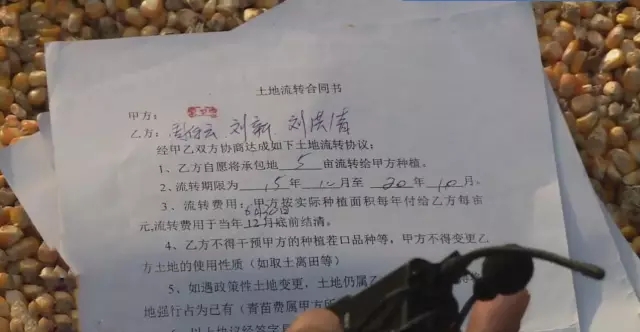 土地流转合同书
甲方：
乙方： 刘新 刘洪清
经甲乙双方协商达成如下土地流转协议：
1、乙方自愿将承包地 5 亩流转给甲方种植。
2、流转期限为 15 年 10 月至 20 年 10 月。
3、流转费用：甲方按实际种植面积每年付给乙方每亩
6月30日
元,流转费用于当年12月底前结清。
4、乙方不得干预甲方的种植茬口品种等，甲方不得变更乙
方土地的使用性质（如取土离田等）
5、如遇政策性土地变更，土地仍属乙
地强行占为已有（青苗费属甲方所